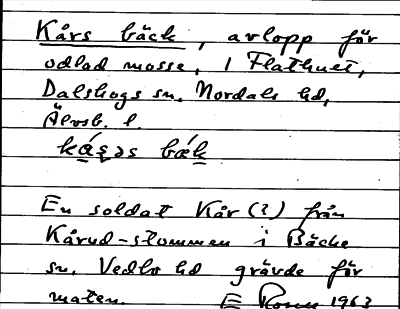 Kårs bäck, avlopp för
odlad mosse, i Flathult,
Dalskogs sn. Nordals hd,
Älvsb. l.
En soldat Kår (?) från
Kårud-stommen i Bäcke
sn. Vedbo hd grävde för
maten. 1963